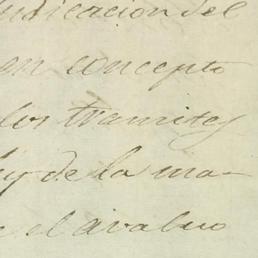 indicacion del
en concepto
los tramites
ley de la ma-
e el avaluo